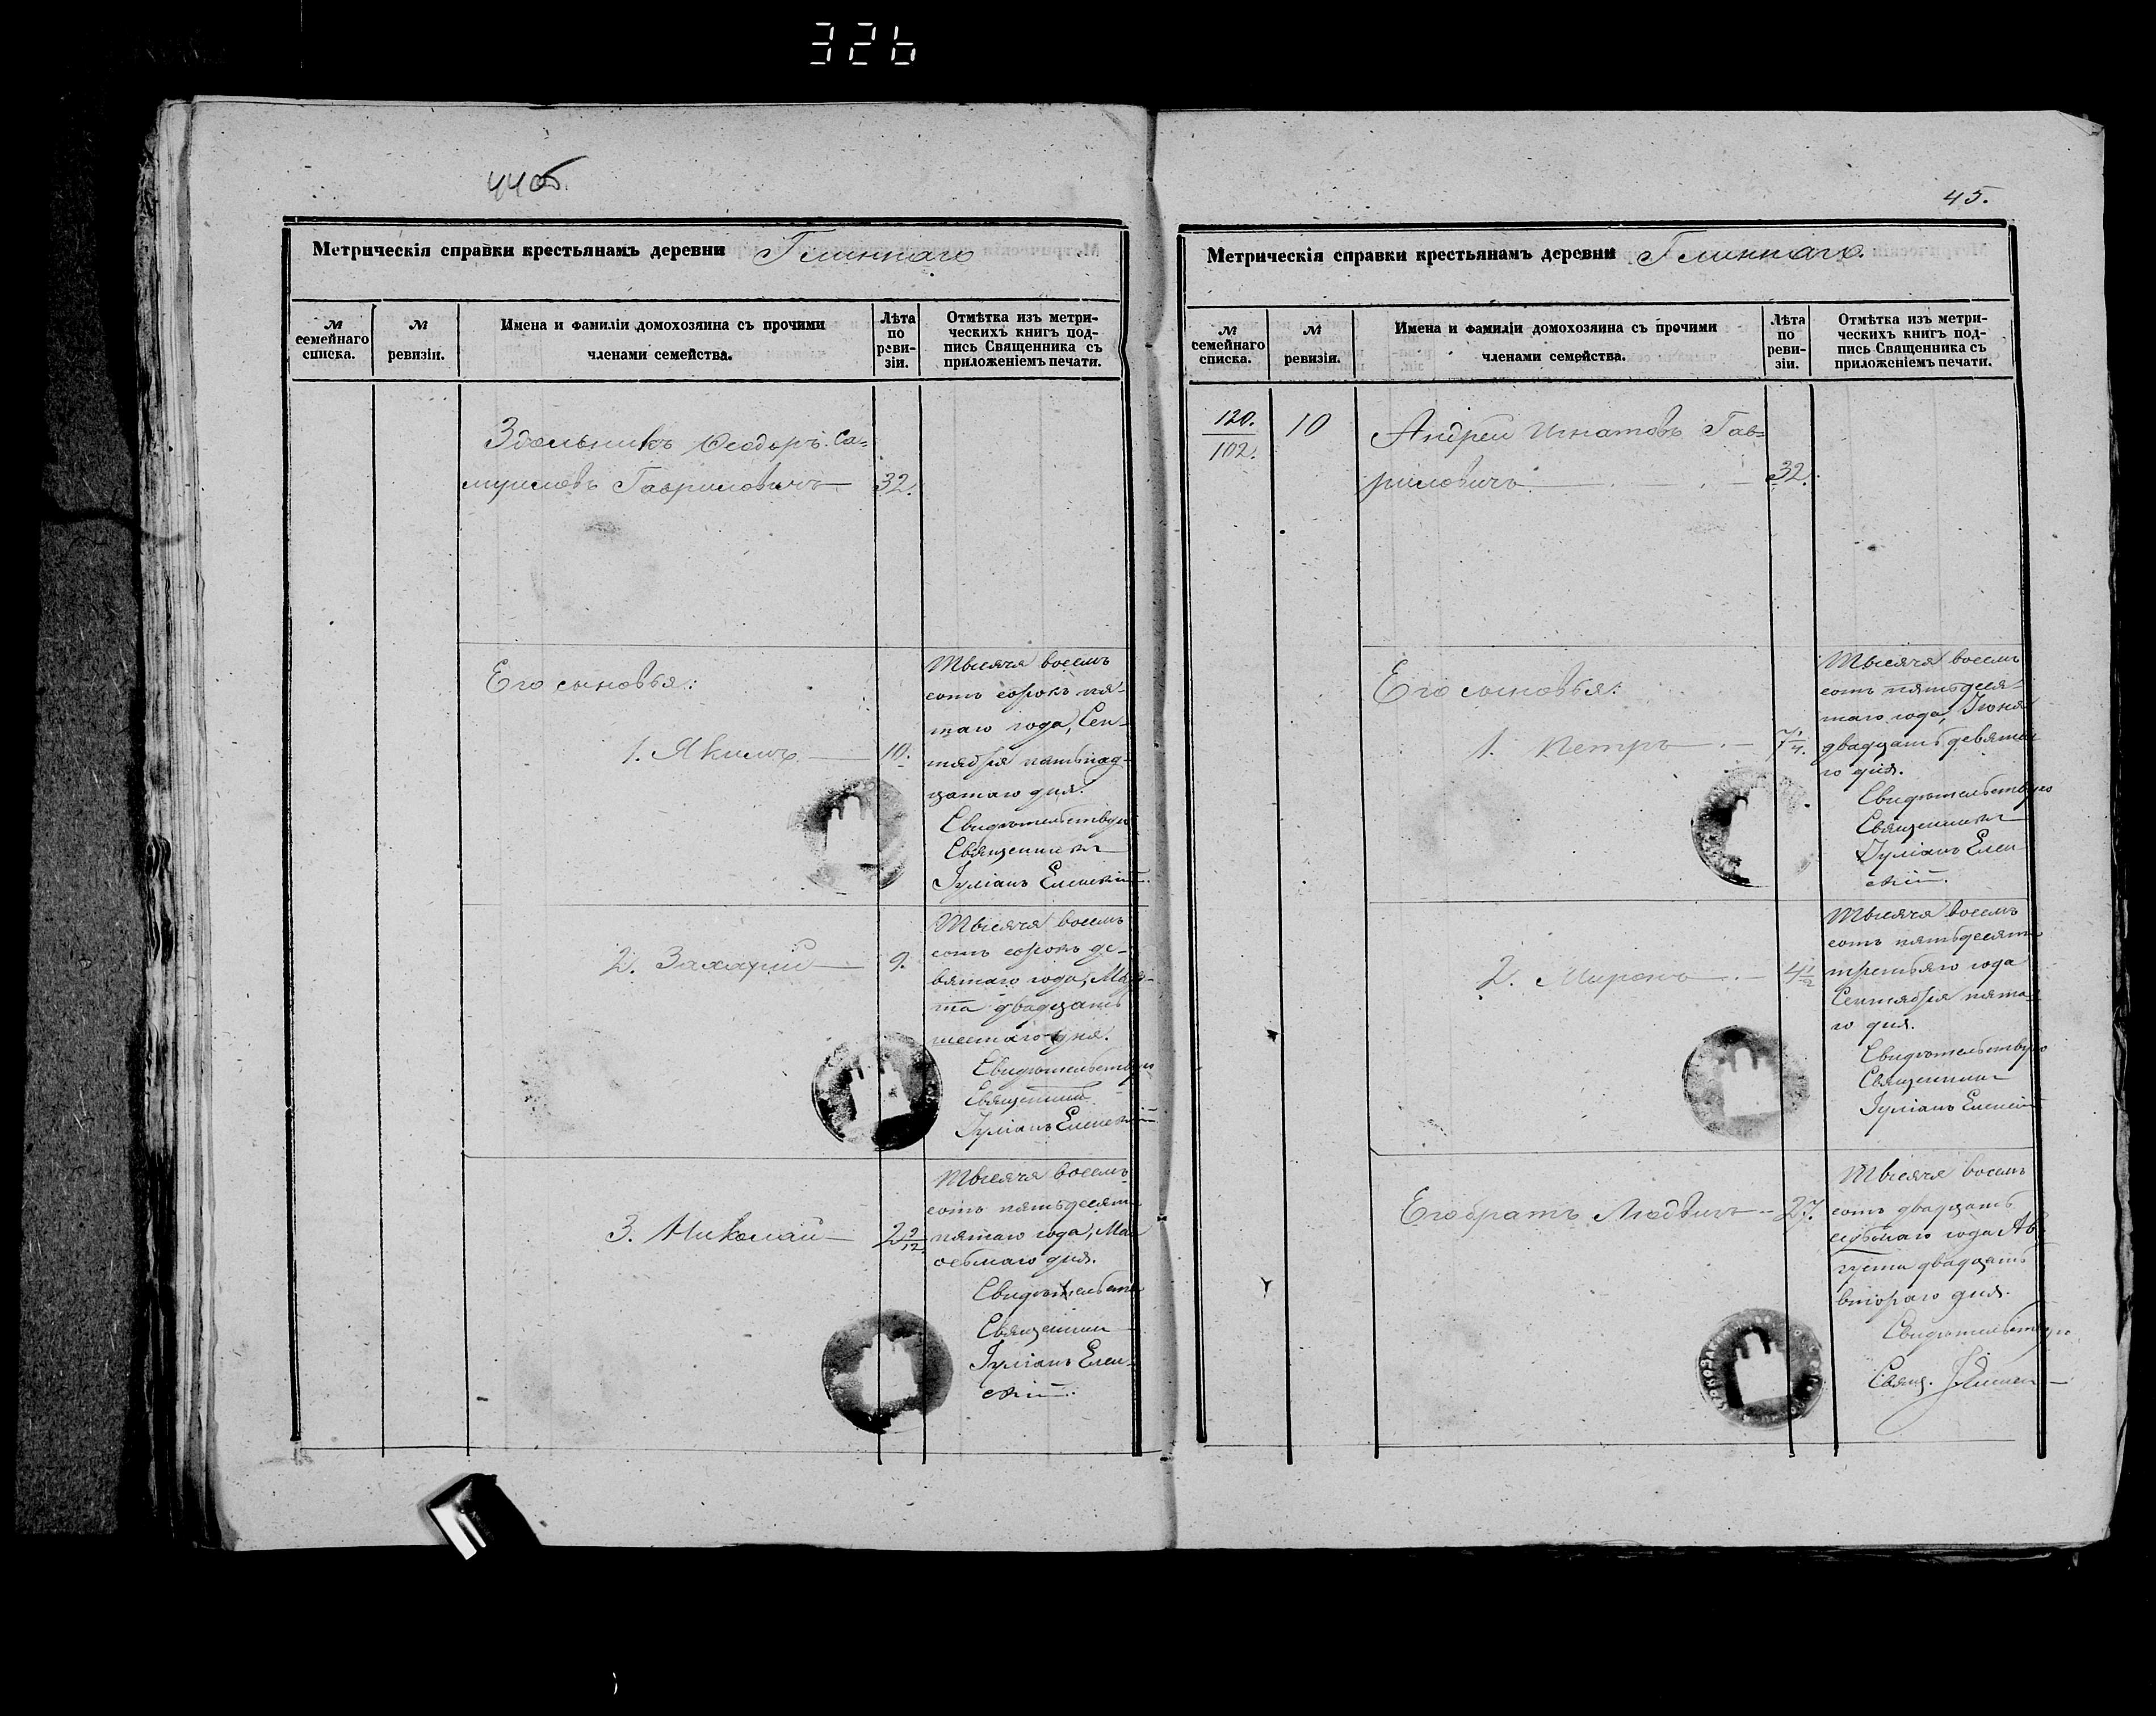 326
44об.
Метрическія справки крестьянамъ деревни Глиннаго
№ семейнаго списка.
№ ревизіи.
Имена и фамиліи домохозяина съ прочими членами семейства.
Лѣта по реви-зіи.
Отмѣтка изъ метри-
ческихъ книгъ под-
пись Священника съ
приложеніемъ печати.
Ѳеодоръ Са=
муиловъ Гавриловичъ 32.
Его сыновья:
1. Якимъ 10.
Тысяча восемь
сотъ сорокъ пя-
таго года, Сен-
тября пятьнад-
цатаго дня.
Свидѣтельствую
Священникъ
Іуліанъ Еленскій
2. Захарій 9.
Тысяча восемь
сотъ сорокъ де-
вятаго года, Мар-
та двадцать
шестаго дня.
Свидѣтельствую
Священникъ
Іуліанъ Еленскій
3. Николай 2 9/12
Тысяча восемь
сотъ пятьдесятъ
пятаго года, Мая
осьмаго дня.
Священникъ
Іуліанъ Елен-
скій.
45.
Метрическія справки крестьянамъ деревни Глиннаго.
№ семейнаго списка.
№ ревизіи.
Имена и фамиліи домохозяина съ прочими членами семейства.
Лѣта по реви-зіи.
Отмѣтка изъ метри-
ческихъ книгъ под-
пись Священника съ
приложеніемъ печати.
120.
102.
10
Андрей Игнатовъ Гав=
риловичъ 32.
Его сыновья:
1. Петръ 7 1/4.
Тысяча восемь
сотъ пятьдеся-
таго года, Іюня
двадцать девята-
го дня.
Свидѣтельствую
Священникъ
Іуліанъ Елен-
скій.
2. Миронъ 4 1/2
Тысяча восемь
сотъ пятьдесятъ
третьяго года
Сентября пята-
го дня.
Свидѣтельствую
Священникъ
Іуліанъ Еленскій
Его братъ Людвигъ 27.
Тысяча восемь
сотъ двадцать
седьмаго года Ав-
густа двадцать
втораго дня.
Свидѣтельствую
Свящ.